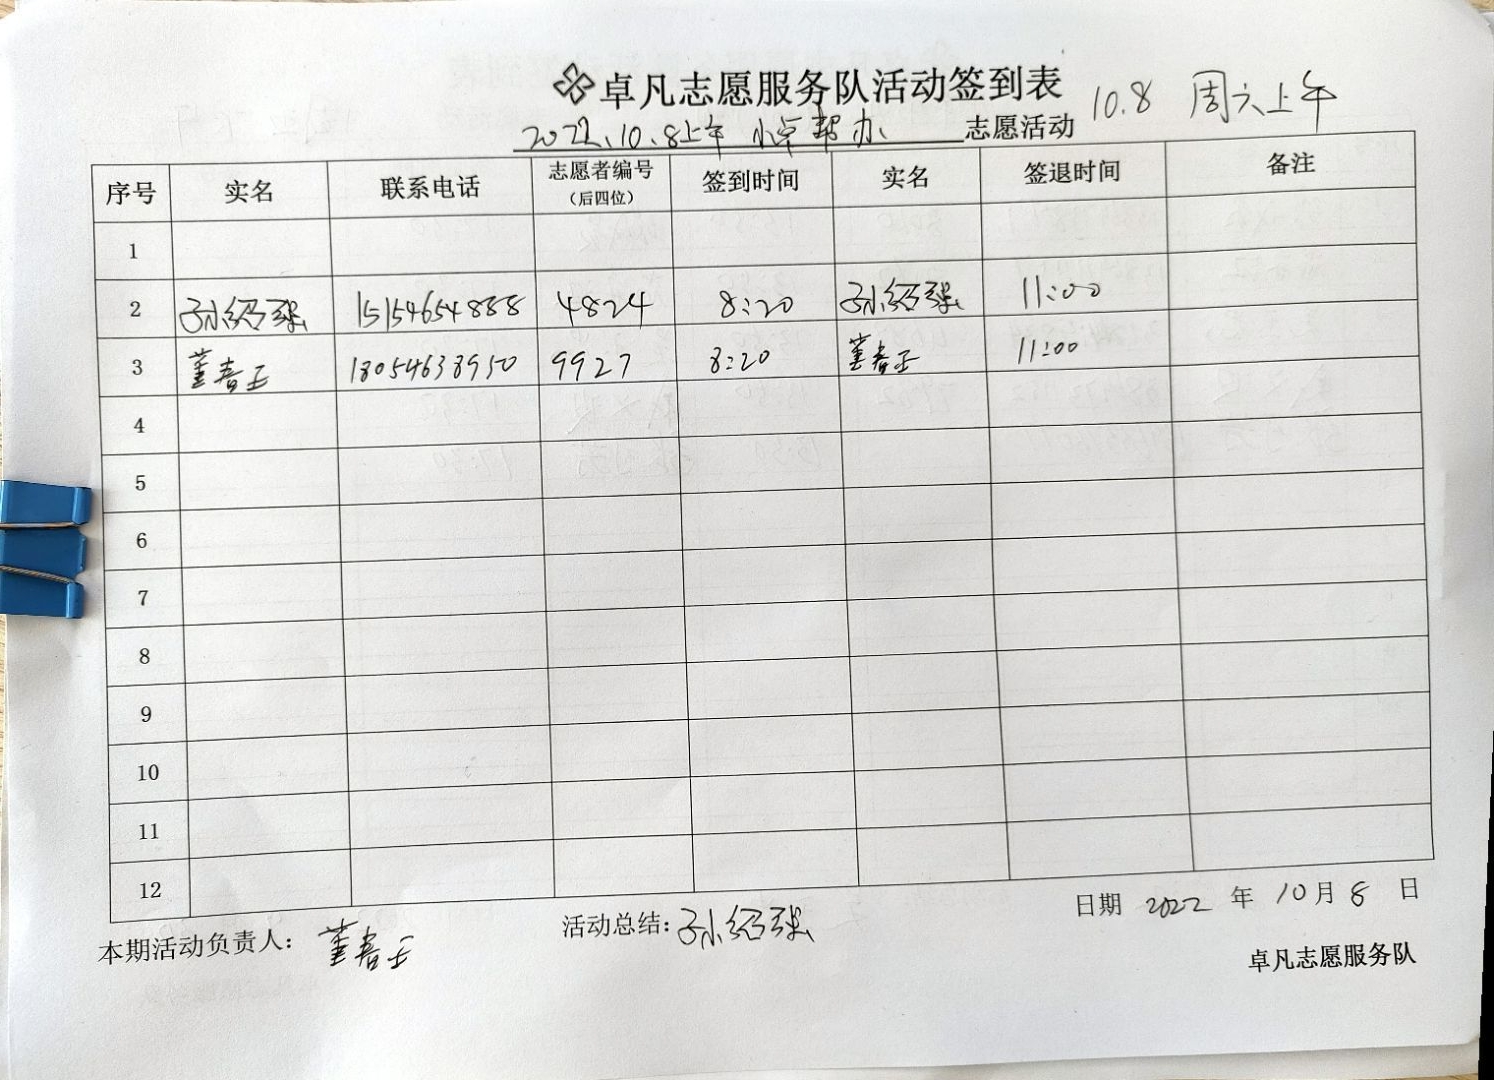 卓凡志愿服务队活动签到表
10.8 周六上午
2022.10.8上午 小卓帮办 志愿活动
序号 实名 联系电话 志愿者编号（后四位） 签到时间 实名 签退时间 备注
1
2 孙绍强 15154654888 4824 8:20 孙绍强 11:00
3 董春玉 18054638950 9927 8:20 董春玉 11:00
4
5
6
7
8
9
10
11
12
本期活动负责人： 董春玉 活动总结: 孙绍强 日期 2022 年 10 月 8 日
卓凡志愿服务队